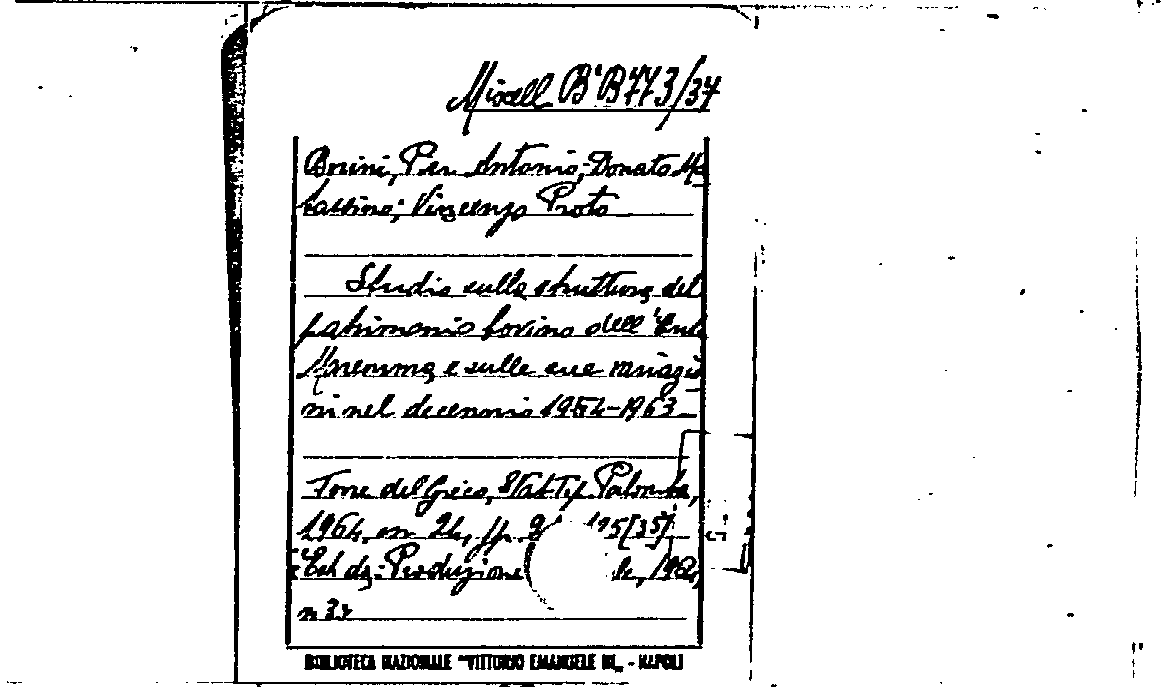 Miscell B'B 773/37
Borini, Pier Antonio; Donato Ma
tassino; Vincenzo Proto
Studio sulla struttura del
patrimonio bovino dell'Ente
Maremma e sulle sue variazio
ni nel decennio 1954-1963
Torre del Greco, Stab Tip Palomba,
1964, cm 24, pp. 195 [35]
Est da: Produzione 1964,
n 3
BIBLIOTECA NAZIONALE "VITTORIO EMANUELE III„ - NAPOLI